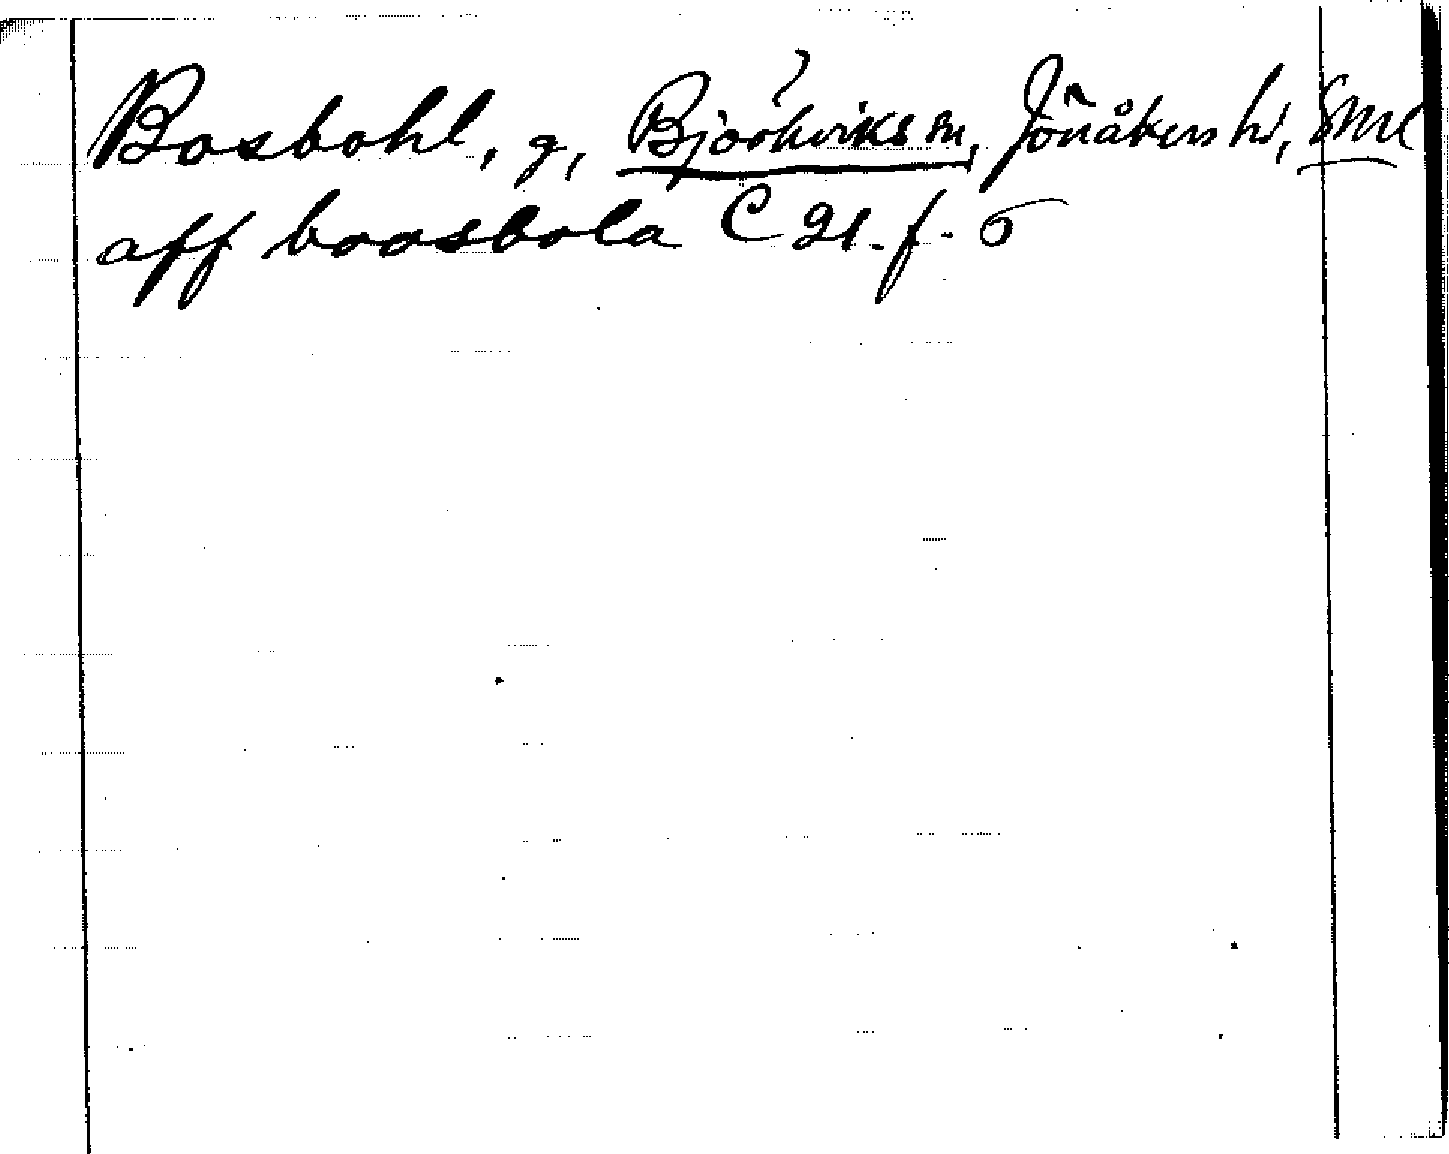 Bosbohl, g, Björkviks sn, Jönåkers hd, Sml
aff boosbola C 21. f. 6